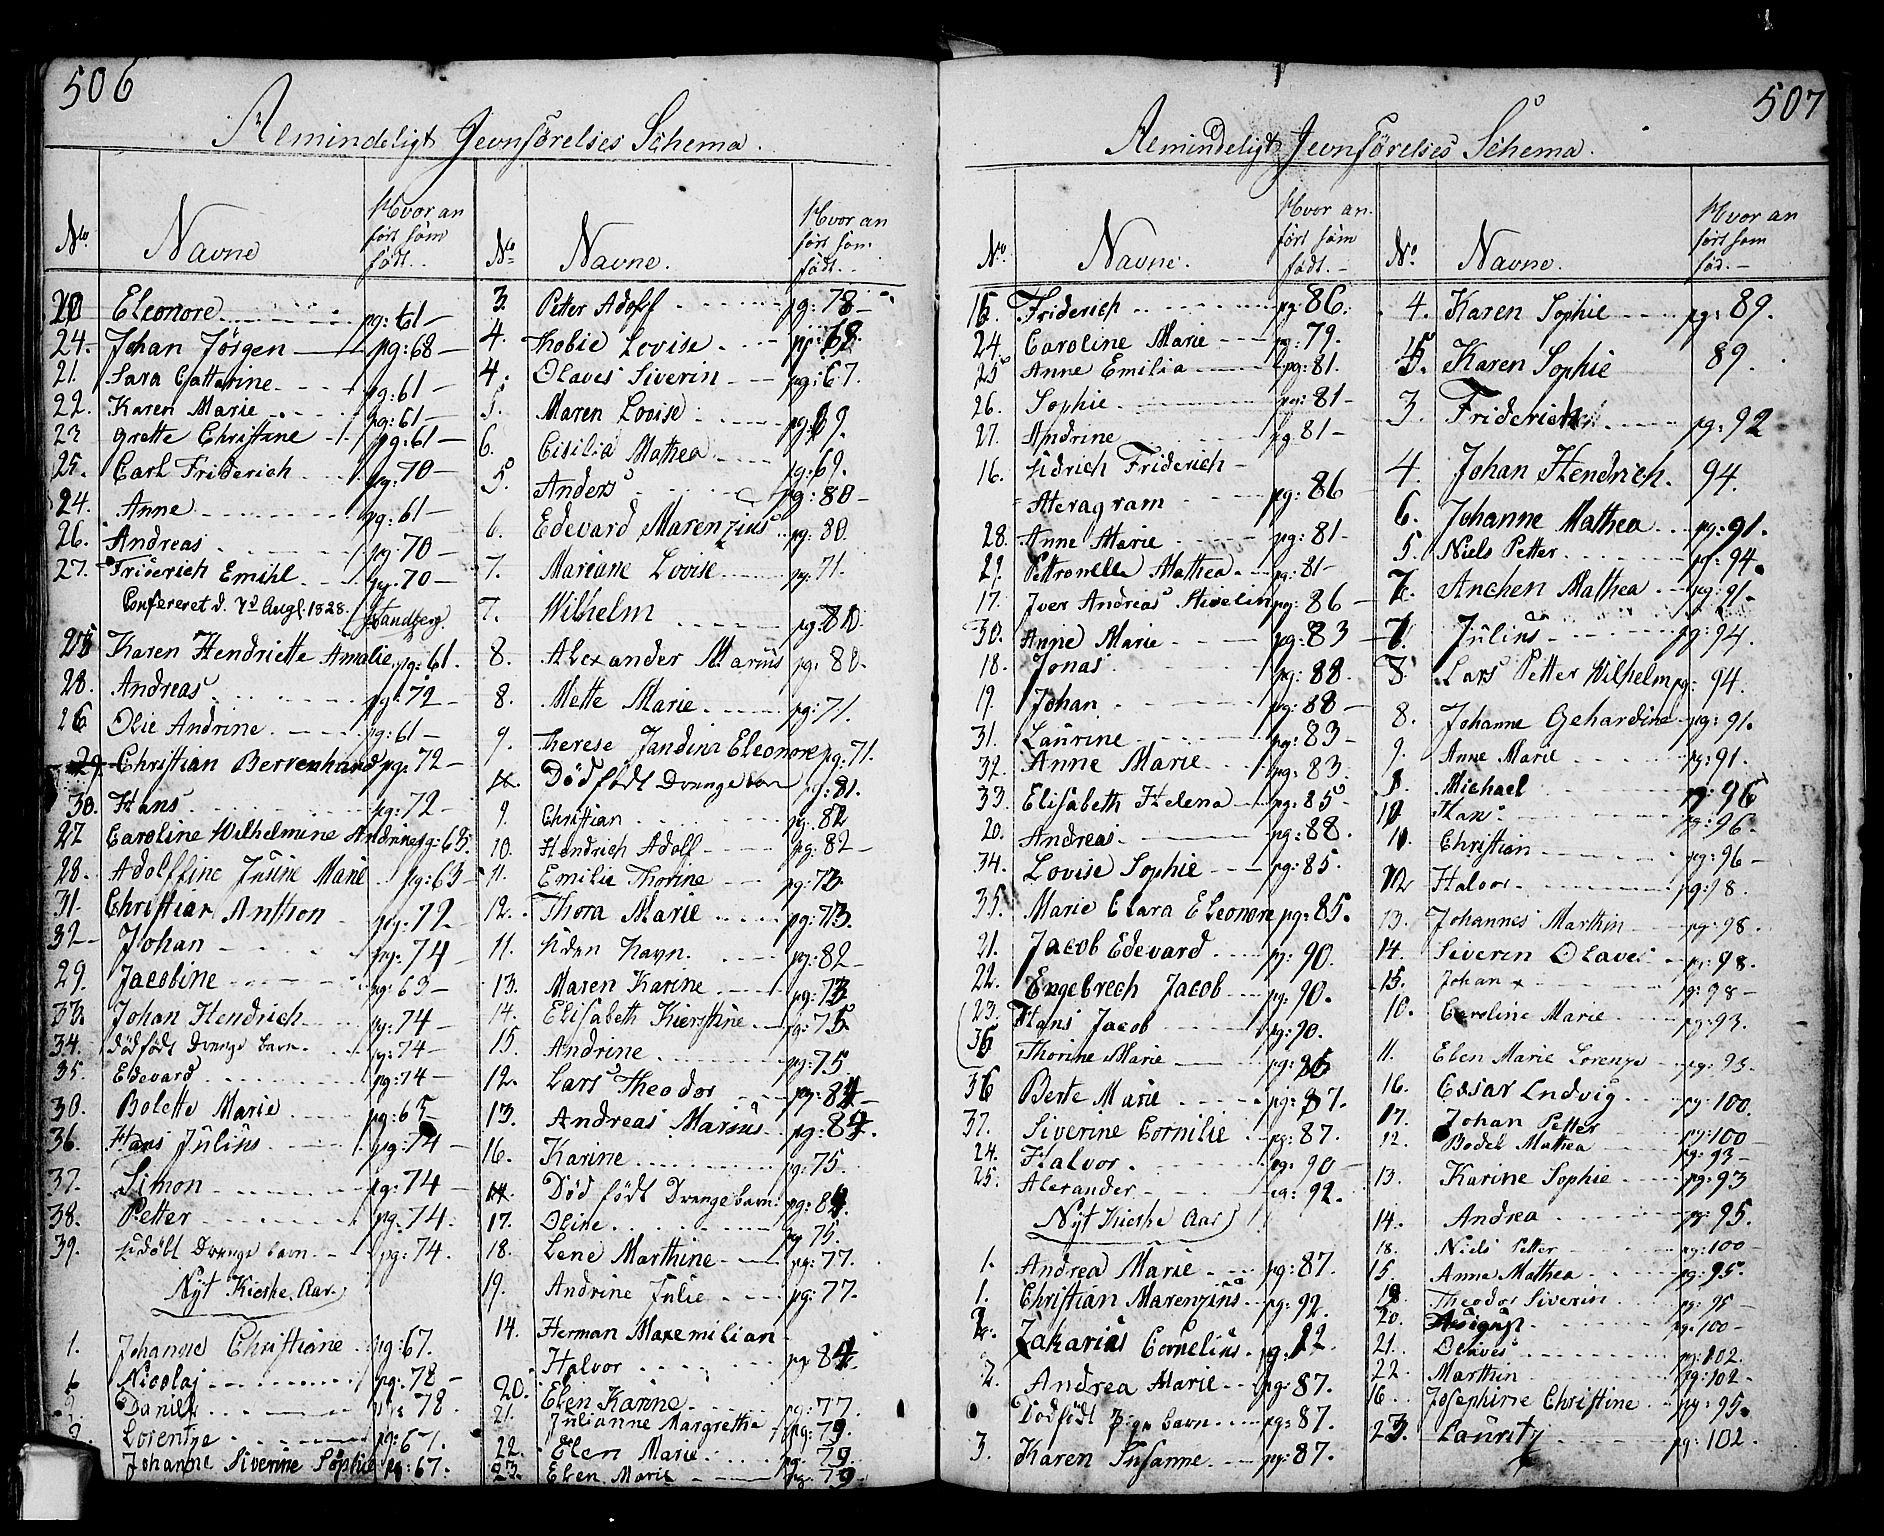 506
Almindeligt Jevnförelses Schema.
No. Navne Hvor an
fört som
födt.
20 Eleonore pg: 61
24. Johan Jörgen pg: 68
21. Sara Cattarine pg: 61
22. Karen Marie pg: 61
23 Grette Christane pg: 61
25. Carl Friderich pg: 70
24. Anne pg: 61
26. Andreas pg: 70
27. Friderich Emihl pg: 70
Confereret d. 7d Augl: 1828. Sandberg
25 Karen Hendriette Amalie pg: 61.
28. Andreas pg: 72
26 Olie Andrine pg: 61
29 Christian Bernhard pg: 72
30. Hans pg: 72
27 Caroline Wilhelmine Andrine pg: 63.
28. Adolffine Jusine Marie pg: 63
31. Christian Anthon pg: 72
32 Johan pg: 74
29. Jacobine pg: 63
33. Johan Hendrich pg: 74
34. dödfödt Drenge barn pg: 74
35. Edevard pg: 74
30. Bolette Marie pg: 65
36. Hans Julius pg: 74
37. Simon pg: 74
38. Petter pg: 74.
39. udöbt Drenge barn pg: 74.
Nyt Kirke Aar
1. Johanne Christiane pg: 67.
1 Nicolaj pg: 78
2 Daniel 78
2. Lorentze pg: 67.
Johanne Siverine Sophie pg: 67.
No Navne. Hvor an
fört som
födt.
3. Petter Adolf pg: 78
4. Thobie Lovise pg: 68
4. Olaves Siverin pg: 67.
5. Maren Lovise pg: 69.
6. Cisilia Mathea pg: 69.
5. Anders pg: 80
6. Edevard Marenzius pg: 80.
7. Mariane Lovise pg: 71.
7. Wilhelm pg: 80
8. Alexander Marius pg: 80.
8. Mette Marie pg: 71.
9. Therese Jandine Eleonore pg: 71.
Död födt Drengebarn pg: 81.
9. Christian pg: 82
10. Hendrich Adolf pg: 82
11. Emilie Thorine pg: 73
12. Thora Marie pg: 73.
11. Uden Navn. pg: 82
13. Maren Karine pg: 73
14. Elisabeth Kierstine pg: 75
15. Andrine pg: 75
12. Lars Theodor pg: 84
13. Andreas Marius pg: 84.
16. Karine pg: 75.
Död födt Drenge barn pg: 84.
17. Oline pg 75.
18. Lene Marthine pg: 77.
19. Andrine Julie pg: 77.
14. Herman Maxemilian
Halvor pg 84.
20. Elen Karine pg: 77
21. Julianne Margrethe pg: 79.
22. Elen Marie pg: 79
23. Elen Marie pg: 79
507
Almindeligt Jevnförelses Schema.
No. Navne. Hvor an
fört som
födt.
15. Friderich pg: 86.
24. Caroline Marie pg: 79.
25 Anne Emilia pg: 81.
26. Sophie pg: 81
27. Andrine pg 81
16. Friderich
pg: 86
28. Anne Marie pg: 81
29. Pettronelle Mathea pg: 81
17. Iver Andreas pg: 86
30. Anne Marie pg: 83
18. Jonas pg: 88.
19. Johan pg: 88
31. Laurine pg: 83
32. Anne Marie pg: 83.
33. Elisabeth Helena pg: 85
20. Andreas pg: 88.
34. Lovise Sophie pg: 85.
35. Marie Clara Eleonore pg: 85.
21. Jacob Edevard pg: 90.
22. Engebrech Jacob pg: 90.
23. Hans Jacob pg: 90.
35 Thorine Marie pg: 85
36 Berte Marie pg: 87.
37. Siverine Cornilie pg: 87.
24. Halvor pg: 90
25. Alexander pg: 92.
Nyt Kirke Aar
1. Andrea Marie pg: 87.
1. Christian Marenzius pg: 92.
2. Zakarias Cornelius
2. Andrea Marie pg: 87.
Dödfödt Pige barn pg: 87.
3. Karen Susanne pg: 87.
No. Navne. Hvor an
fört som
fød.
4. Karen Sophie pg: 89.
5. Karen Sophie 89.
3. Friderich pg: 92
4. Johan Hendrich. 94.
6. Johanne Mathea pg: 91.
5. Niels Petter pg: 94.
7. Anchen Mathea pg: 91
Julius pg: 94.
Lars Petter Wilhelm pg: 94.
8. Johanne Gehardine pg: 91.
9. Anne Marie pg: 91.
8. Michael pg: 96
Hans pg: 96.
Christian pg: 96
12 Halvor pg: 98.
13. Johannes Marthin pg: 98.
14. Siverin Olaves pg: 98.
15. Johan pg: 98
10. Caroline Marie pg: 93.
11. Elen Marie Lorenze pg: 93.
16. Cesar Ludvig pg: 100.
17. Johan Petter pg: 100
12. Bodel Mathea pg: 93
13. Karine Sophie pg: 93
14. Andrea pg: 95.
18. Niels Petter pg: 100
15. Anne Mathea pg: 95.
19 Theodor Siverin pg: 95
20. August pg: 100
21. Olaves pg: 102.
22. Marthin pg: 102
16. Josephine Christine pg: 95.
23. Lauritz pg: 102.